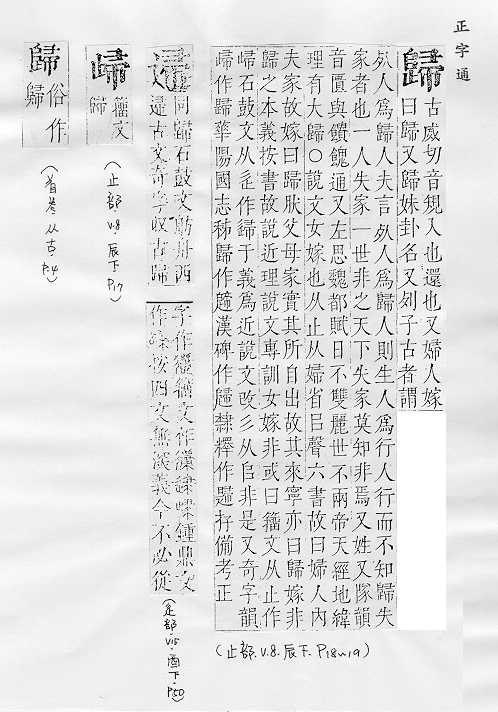 正字通
歸 古威切音規入也還也又婦人嫁
曰歸又歸妹卦名又列子古者謂
死人爲歸人夫言死人爲歸人則生人爲行人行而不知歸失
家者也一人失家一世非之天下失家莫知非焉又姓又隊韻
音匱與饋餽通又左思魏都賦日不雙麗世不兩帝天經地緯
理有大歸○說文女嫁也从止从婦省𠂤聲六書故曰婦人內
夫家故嫁曰歸朕父母家實其所自出故其來寧亦曰歸嫁非
歸之本義按書故說近理說文專訓女嫁非或曰籀文从止作
石鼓文从辵作歸于義爲近說文改从𠂤非是又奇字韻
歸作華陽國志秭歸作漢碑作隸釋作幷備考正
(止部.V.8.辰下.P18~19)
同歸石鼓文舫舟西
還古文奇字叹古歸
字作籀文作鍾鼎文
作按四文無深義今不必從
(辵部.V15.酉下.P50)
㱕 籀文
歸
(止部.V.8.辰下P17)
歸 俗作
歸
(首卷从古.P.4)